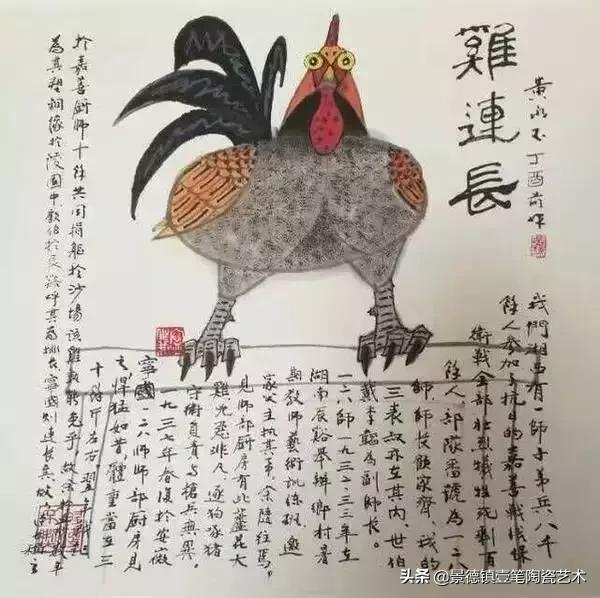 雞連長
黃永玉丁酉前作
我們湘西有一師子弟兵八千
餘人參加了抗日的嘉善戰役保
衛戰全部壯烈犧牲完剩百
餘人部隊番號為一二八
師,師長顧家齊,我的
三表叔亦在其內,世伯
戴季韜為副師長。
一二八師一九三二三三年在
湖南辰谿舉辦鄉村
與教師藝術訓練班邀
家父主執其事,余隨往焉,
見師部廚房有此蘆花大
雞兇惡非凡逐狗啄豬
守衛負責與槍兵無異。
一九三七年春復於安徽
寧國一二八師師部廚房見
之悍猛如昔體重當在三
十餘斤左右
於嘉善廚師十餘共同捐軀於沙場該雞豈能免乎故
為其塑銅像於陵園中
頭条 @景德镇壹笔陶瓷艺术